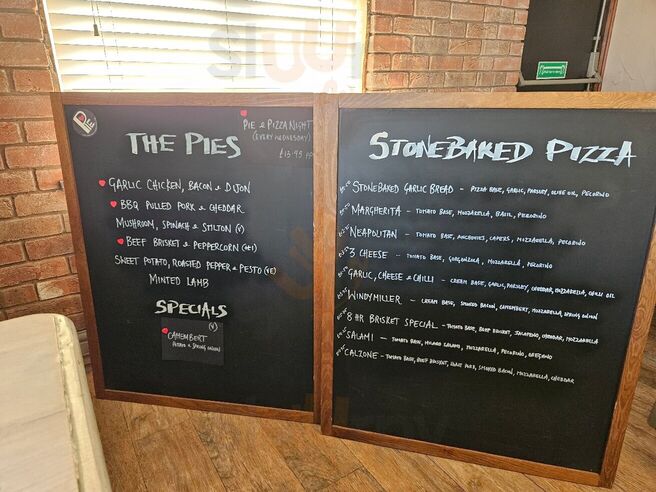 PIE
PIE & PIZZA NIGHT
(EVERY WEDNESDAY)
£13.95 PP
THE PIES
GARLIC CHICKEN, BACON & DIJON
BBQ PULLED PORK & CHEDDAR
MUSHROOM, SPINACH & STILTON (V)
BEEF BRISKET & PEPPERCORN
SWEET POTATO, ROASTED PEPPER & PESTO (VE)
MINTED LAMB
SPECIALS
(V)
CAMEMBERT
POTATO & SPRING ONION
STONEBAKED PIZZA
STONEBAKED GARLIC BREAD - PIZZA BASE, GARLIC, PARSLEY, OLIVE OIL, PECORINO
MARGHERITA - TOMATO BASE, MOZZARELLA, BASIL, PECORINO
NEAPOLITAN - TOMATO BASE, ANCHOVIES, CAPERS, MOZZARELLA, PECORINO
3 CHEESE - TOMATO BASE, GORGONZOLA, MOZZARELLA, PECORINO
GARLIC, CHEESE & CHILLI - CREAM BASE, GARLIC, PARSLEY, CHEDDAR, MOZZARELLA, CHILLI OIL
WINDYMILLER - CREAM BASE, SMOKED BACON, CAMEMBERT, MOZZARELLA, SPRING ONION
8 HR BRISKET SPECIAL - TOMATO BASE, BEEF BRISKET, JALAPENO, CHEDDAR, MOZZARELLA
SALAMI - TOMATO BASE, MILANO SALAMI, MOZZARELLA, PECORINO, OREGANO
CALZONE - TOMATO BASE, BEEF BRISKET, PORK, SMOKED BACON, MOZZARELLA, CHEDDAR